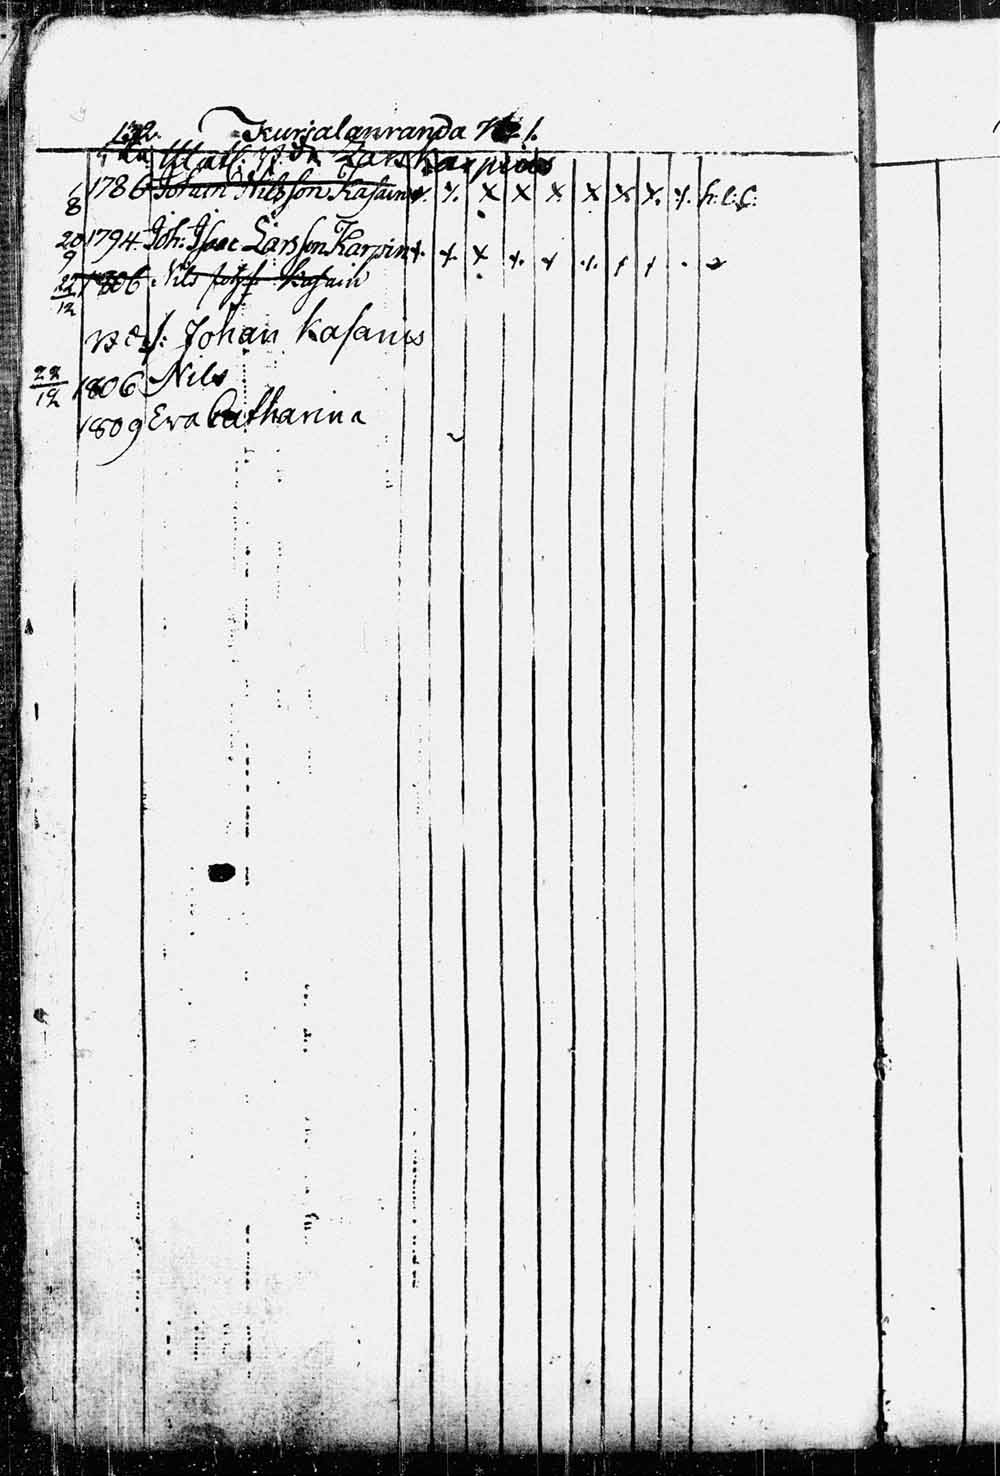 132. Kurjalanranda No 1.
Lars Karpins
6/8 1786 Johan Nilsson Kasain x. x. x x x x x x. x. h: c: c:
20/9 1794. Joh: Isaac Larsson Karpin x. x. x x. x x.
22/12 1806 Nils Kasain
Johan Kasanis
22/12 1806 Nils
1809 Eva Catharina